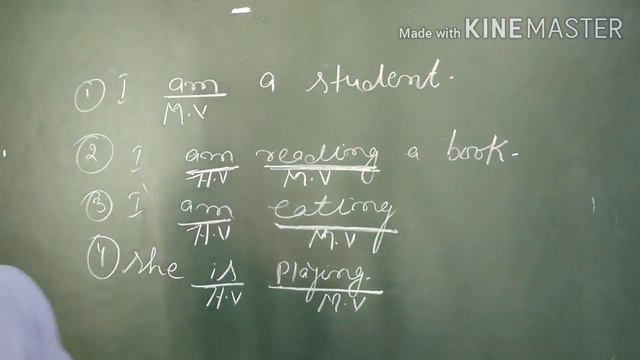 Made with KINEMASTER
① I am a student.
M.V
② I am reading a book.
H.V M.V
③ I am eating
H.V M.V
④ She is Playing.
H.V M.V